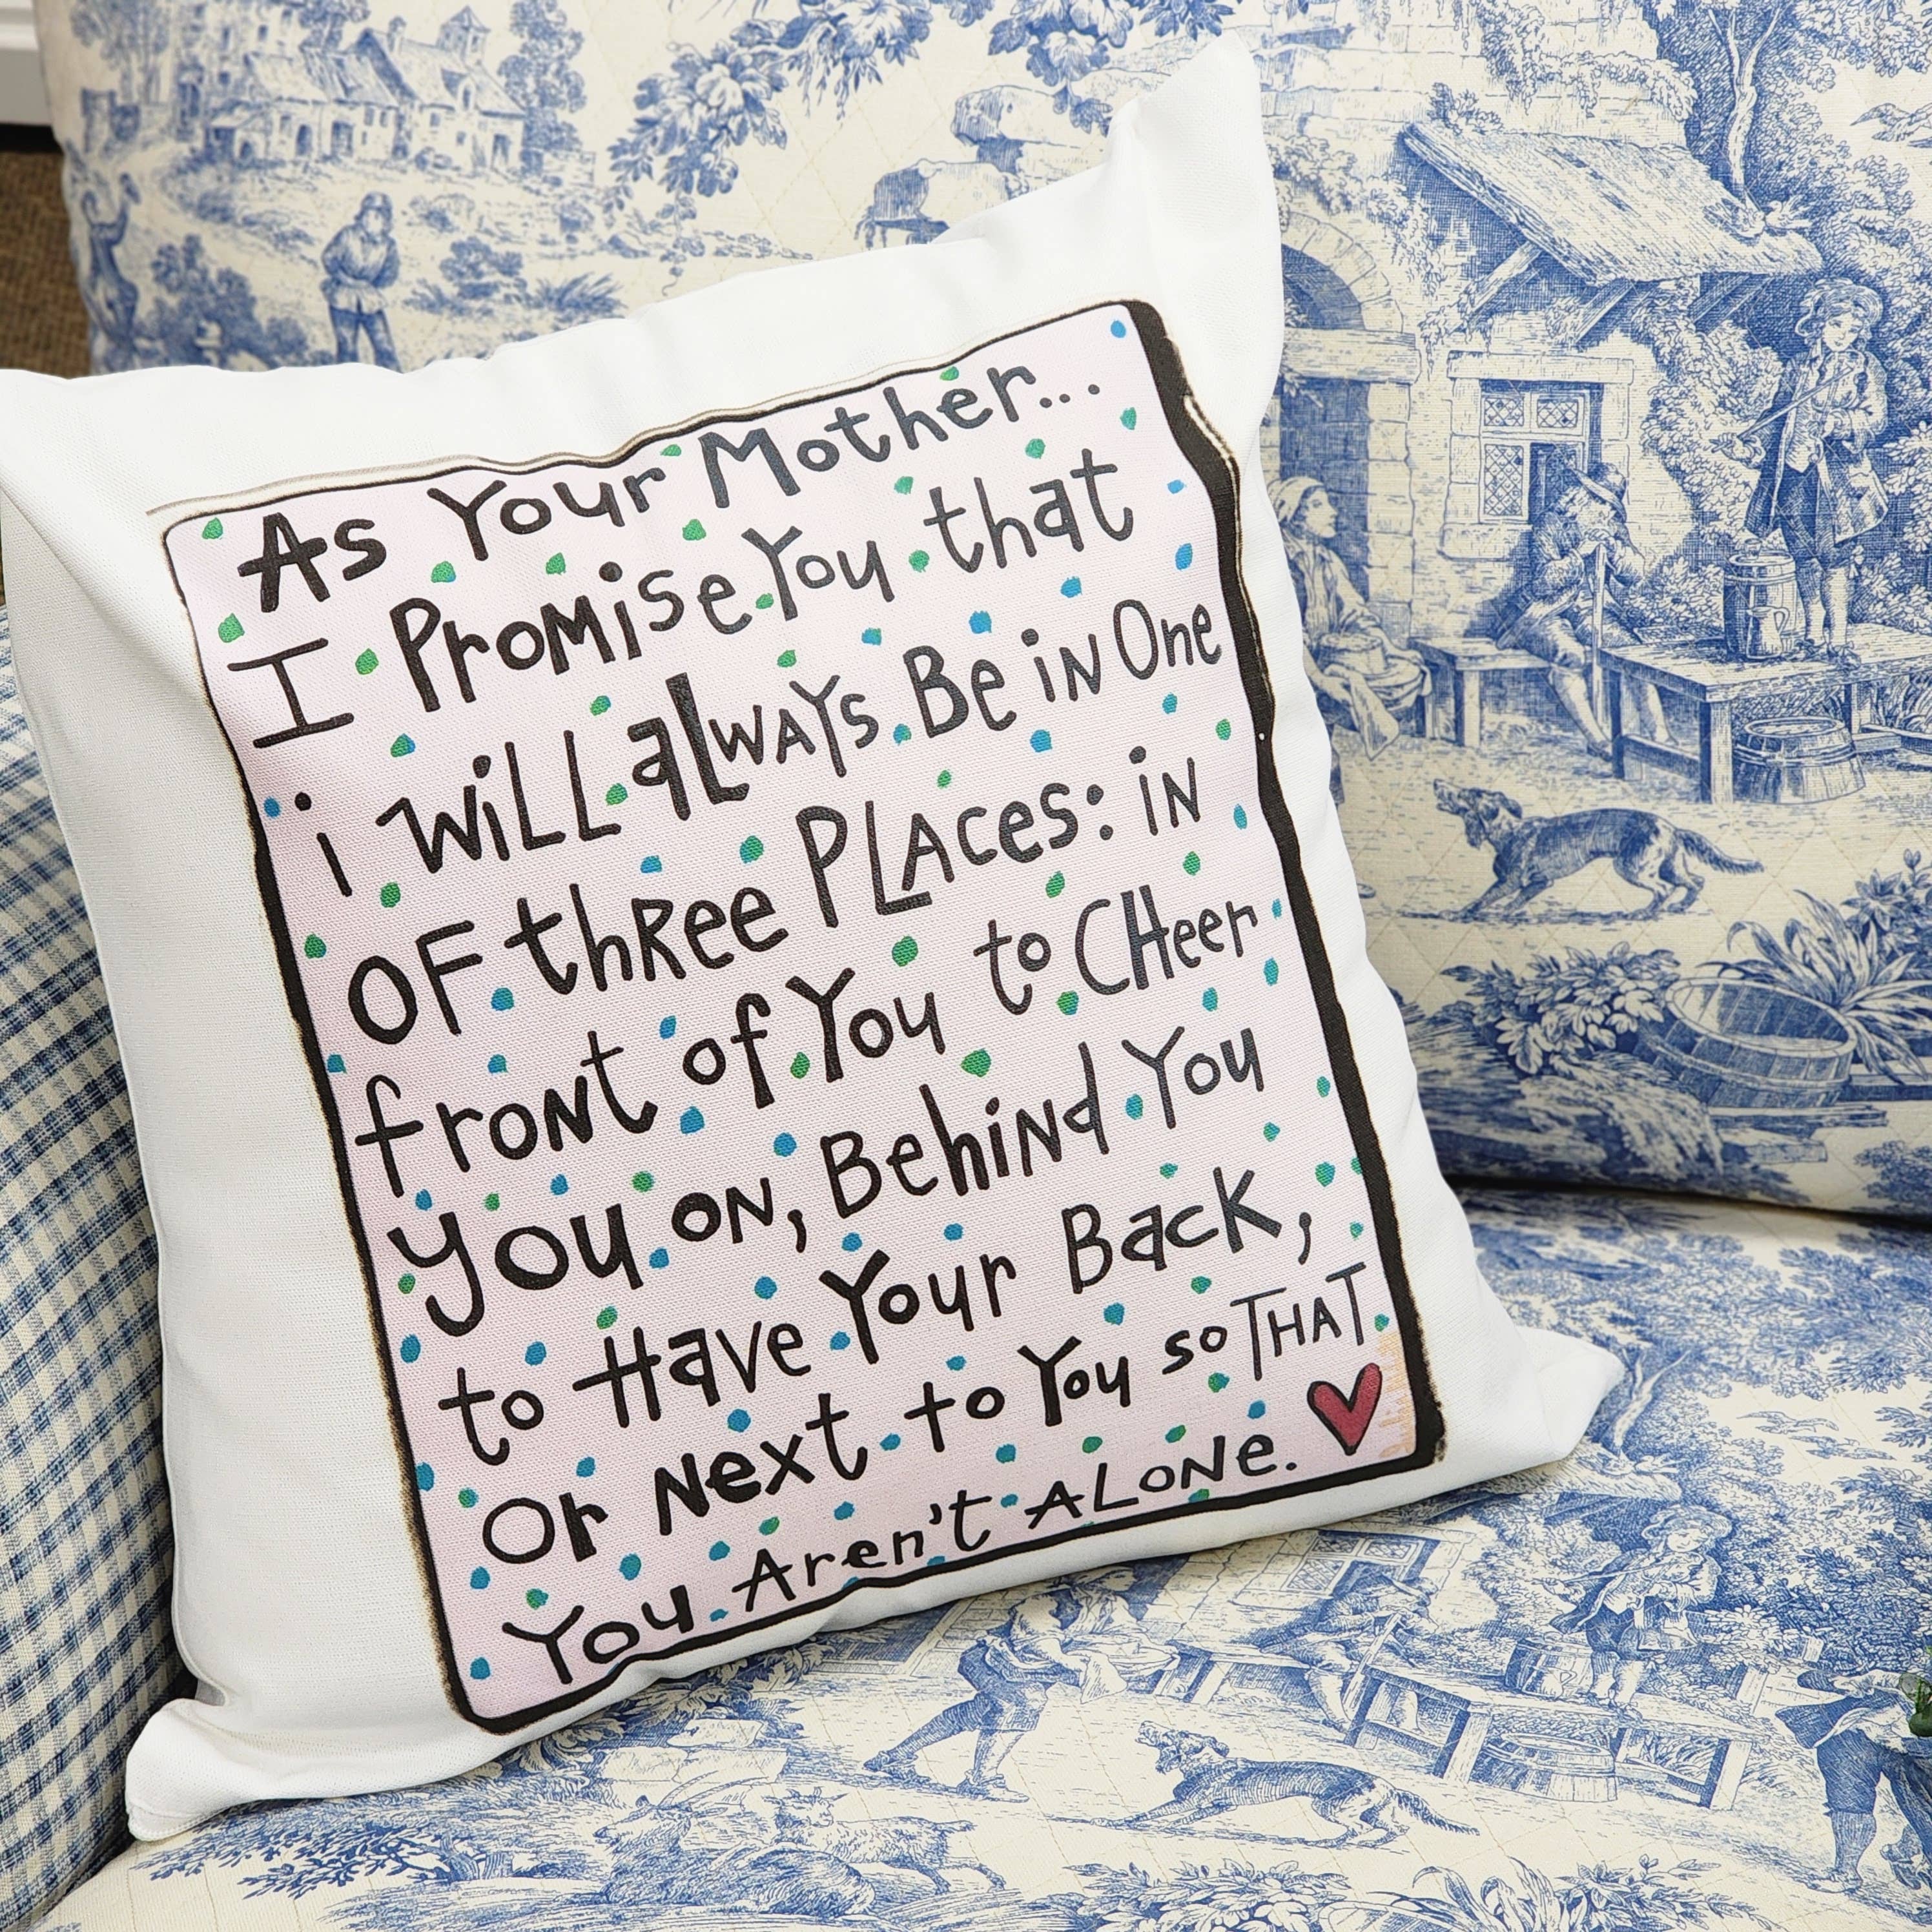 As Your Mother...
I PromiSe You that
i WiLL aLWAYs Be iN One
OF thRee PLAces: iN
froNt of You to CHeer
you oN, BehiNd You
to Have Your Back,
Or Next to You so THAT
You Aren't ALoNe.